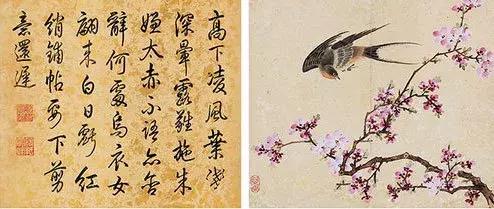 高下凌風葉淺
深暈露蕤施朱
嫌太赤小語亦含
辭何處烏衣女
翻來白日紅
綃鋪帖妥下剪
意還遲